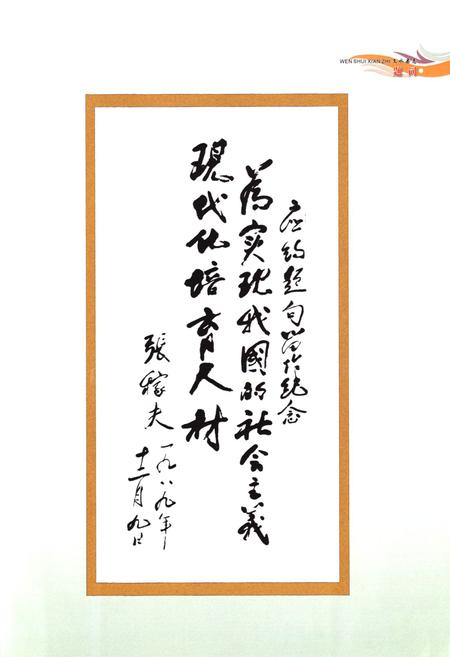 WEN SHUI XIAN ZHI 文水县志
题词
应约题句留作纪念
為实現我國的社会主義
現代化培育人材
張稼夫
一九八九年
十二月九日